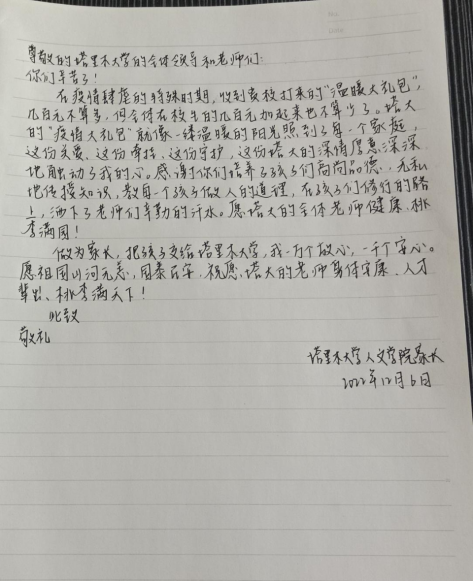 尊敬的塔里木大学的全体领导和老师们:
你们辛苦了!
在疫情肆虐的特殊时期,收到贵校打来的“温暖大礼包”,
几百元不算多,但全体在校生的几百元加起来也不算少了。塔大
的“疫情大礼包”就像一缕温暖的阳光照到了每一个家庭,
这份关爱、这份牵挂、这份守护,这份塔大的深情厚意深深
地触动了我的心。感谢你们培养了孩子们高尚品德、无私
地传授知识,教每一个孩子做人的道理,在孩子们修行的路
上,洒下了老师们辛勤的汗水。愿塔大的全体老师健康、桃
李满园!
做为家长,把孩子交给塔里木大学,我一万个放心,一千个安心。
愿祖国山河无恙,国泰民安,祝愿塔大的老师身体安康、人才
辈出、桃李满天下!
此致
敬礼
塔里木大学人文学院家长
2022年12月6日